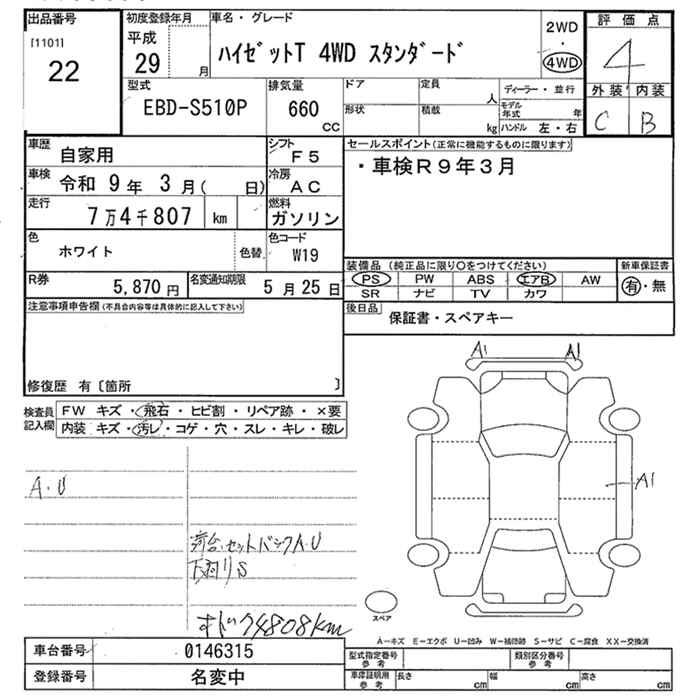 出品番号
[1101]
22
初度登録年月
平成
29 月
車名・グレード
ハイゼットT 4WD スタンダード
2WD
・
4WD
評価点
4
外装 内装
C B
型式
EBD-S510P
排気量
660
CC
ドア
形状
定員
人
積載
kg
ディーラー・並行
モデル年式 年
ハンドル 左・右
車歴
自家用
シフト
F5
車検
令和 9年 3月( 日)
冷房
AC
走行
7万4千807 km
燃料
ガソリン
色
ホワイト
色替
色コード
W19
R券
5,870円
名変通知期限
5月25日
セールスポイント(正常に機能するものに限ります)
・車検R9年3月
装備品(純正品に限り○をつけてください)
PS PW ABS エアB AW
SR ナビ TV カワ
新車保証書
有・無
後日品
保証書・スペアキー
注意事項申告欄(不具合内容等は具体的に記入して下さい)
修復歴 有〔箇所 〕
検査員
記入欄
FW キズ・飛石・ヒビ割・リペア跡・×要
内装 キズ・汚レ・コゲ・穴・スレ・キレ・破レ
A1 A1
A1
A・U
荷台、セットバックA・U
下廻りS
4808km
スペア
A−キズ E−エクボ U−凹み W−補修跡 S−サビ C−腐食 XX−交換済
車台番号
0146315
登録番号
名変中
型式指定番号
参考
類別区分番号
参考
車庫証明用
参考
長さ cm
幅 cm
高さ cm